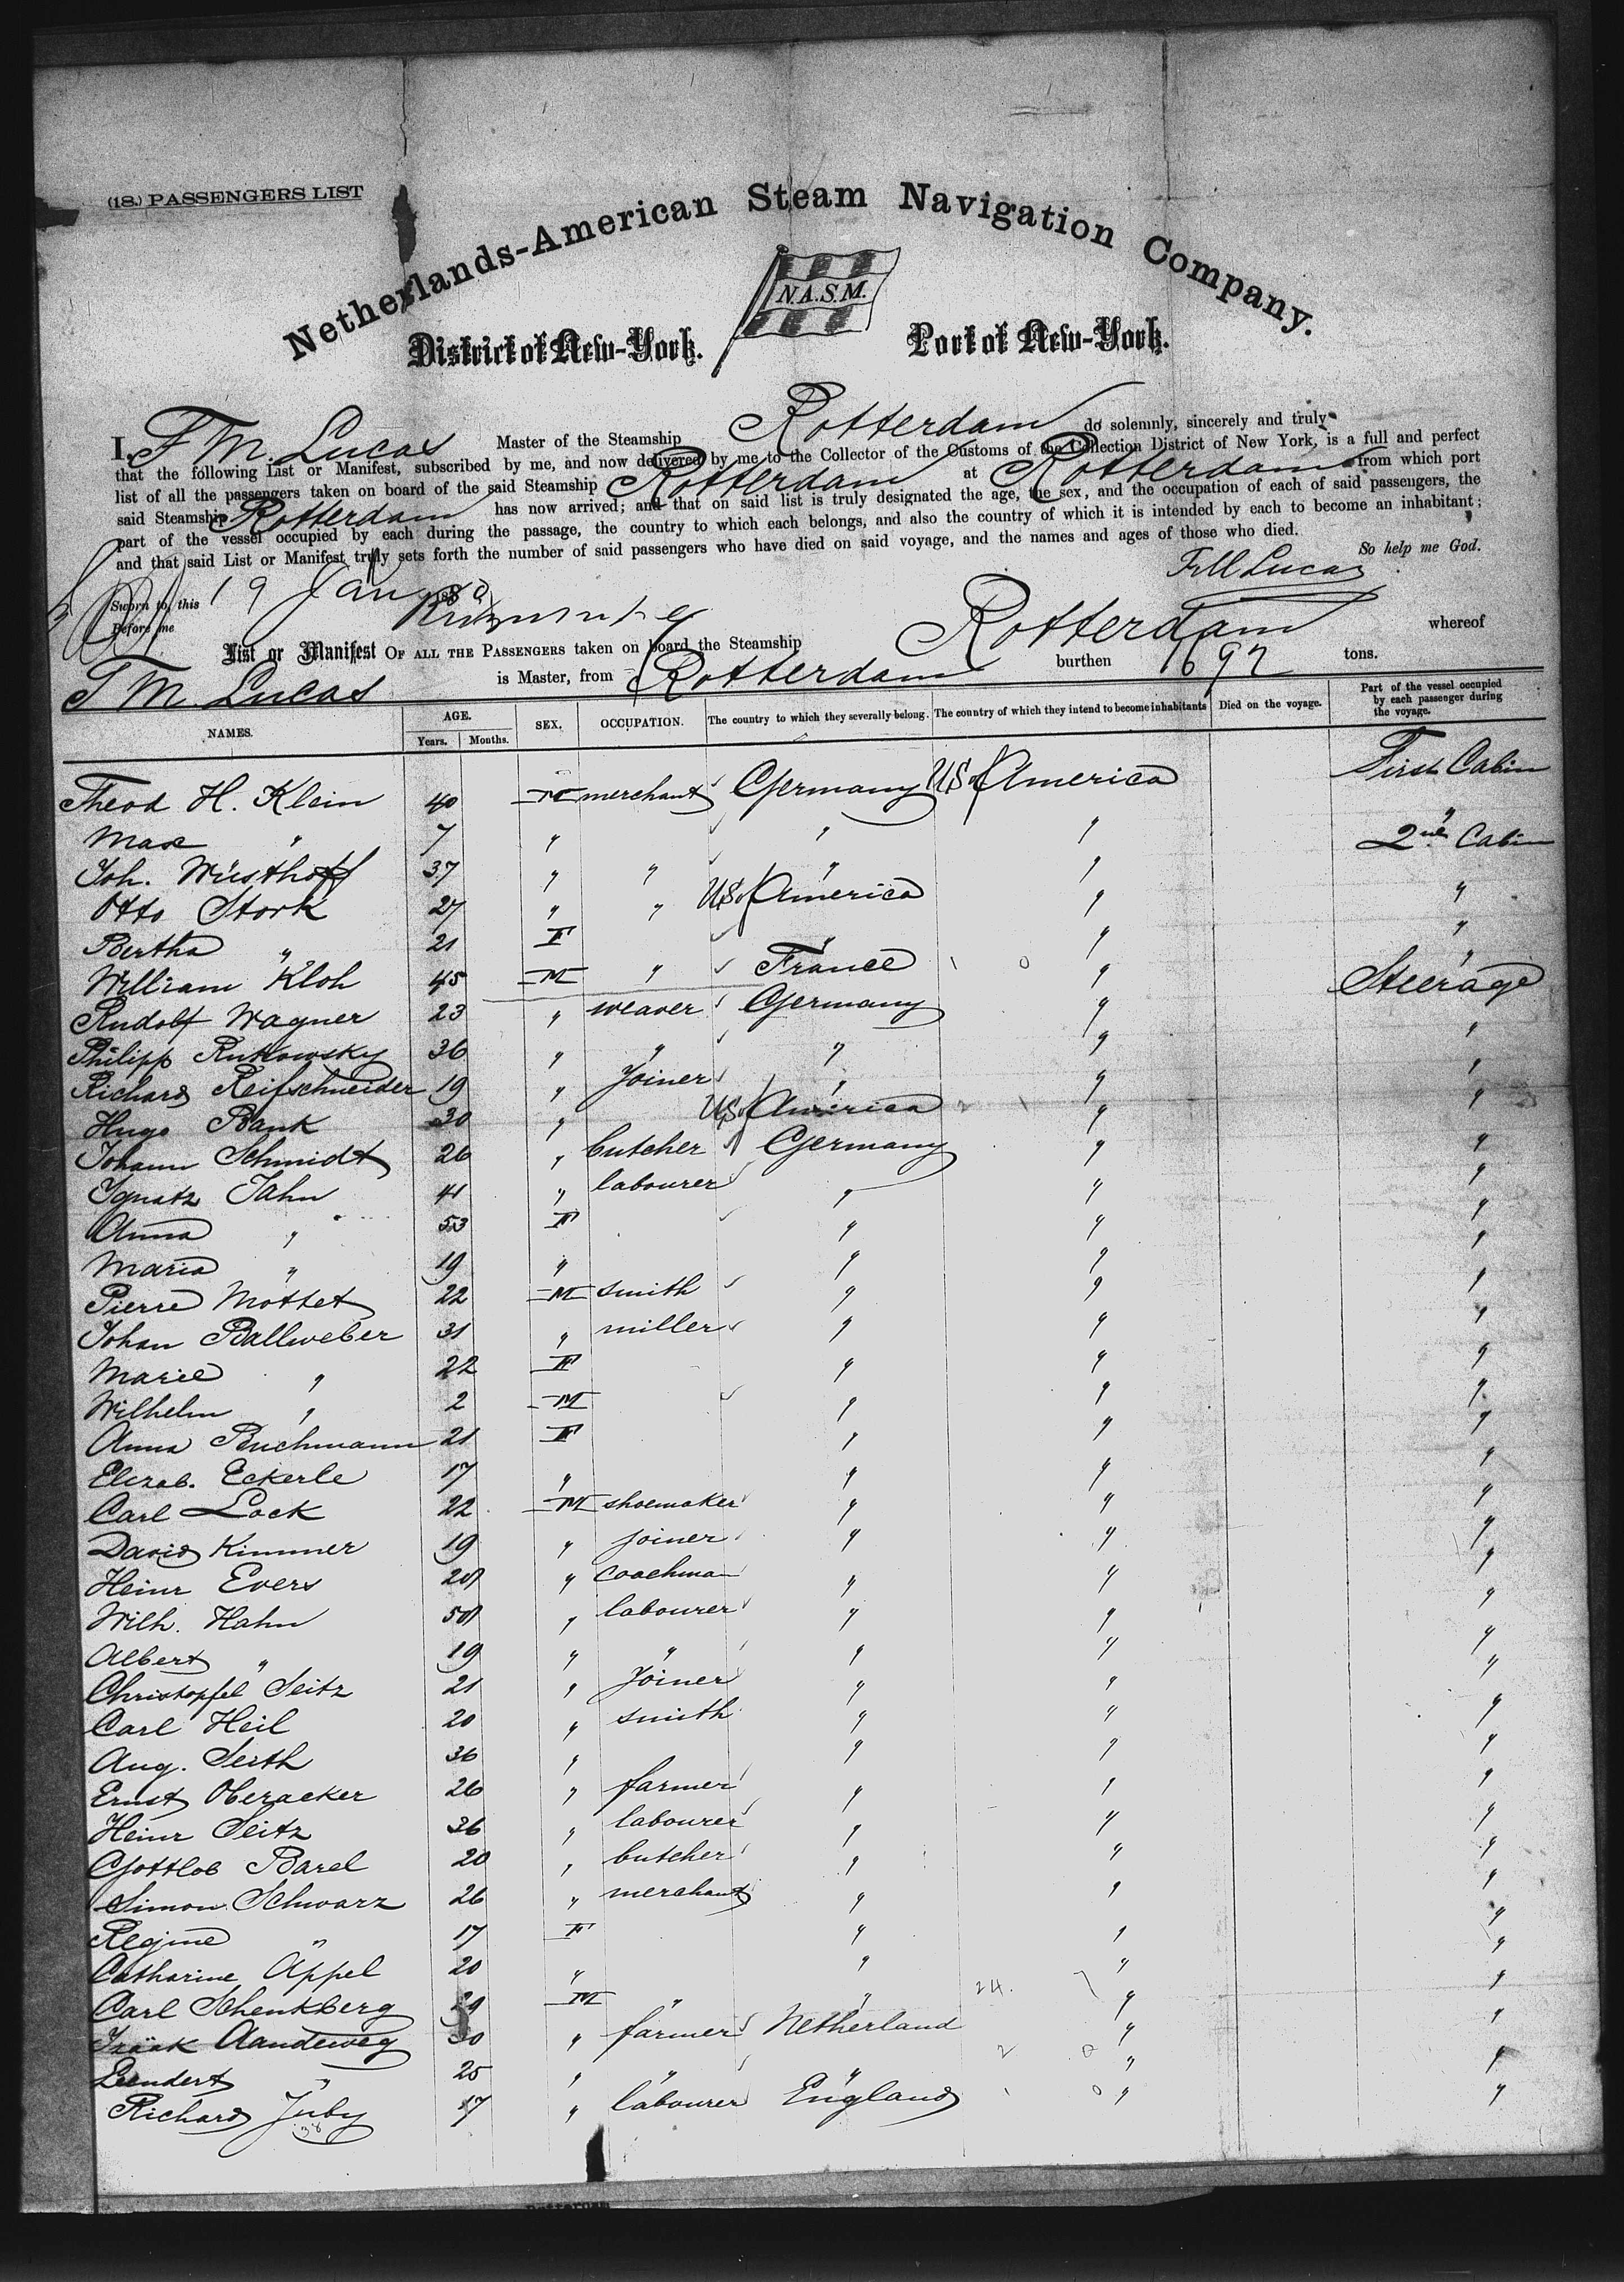 (18.) PASSENGERS LIST
Netherlands-American Steam Navigation Company.
N.A.S.M.
District of New-York. Port of New-York.
I, F M. Lucas Master of the Steamship Rotterdam do solemnly, sincerely and truly
that the following List or Manifest, subscribed by me, and now delivered by me to the Collector of the Customs of the Collection District of New York, is a full and perfect
list of all the passengers taken on board of the said Steamship Rotterdam at Rotterdam from which port
said Steamship Rotterdam has now arrived; and that on said list is truly designated the age, the sex, and the occupation of each of said passengers, the
part of the vessel occupied by each during the passage, the country to which each belongs, and also the country of which it is intended by each to become an inhabitant;
and that said List or Manifest truly sets forth the number of said passengers who have died on said voyage, and the names and ages of those who died.
So help me God.
F M Lucas
Sworn to, this 19 Jan 1880
Before me
List or Manifest OF ALL THE PASSENGERS taken on board the Steamship Rotterdam whereof
F M. Lucas is Master, from Rotterdam burthen 1697 tons.
NAMES. AGE. Years. Months. SEX. OCCUPATION. The country to which they severally belong. The country of which they intend to become inhabitants Died on the voyage. Part of the vessel occupied by each passenger during the voyage.
Theod H. Klein 40 M merchant Germany US of America First Cabin
Max " 7 " " " "
Joh. Wüsthoff 37 " " " " 2nd Cabin
Otto Stork 27 " " US of America " "
Bertha " 21 F " " "
William Kloh 45 M " France " "
Rudolf Wagner 23 " weaver Germany " Steerage
Philipp Rutkowsky 36 " " " " "
Richard Reifschneider 19 " Joiner " " "
Hugo Bank 30 " US of America " "
Johann Schmidt 26 " butcher Germany " "
Ignatz Jahn 41 " labourer " " "
Anna " 53 F " " "
Maria " 19 " " " "
Pierre Mottet 22 M smith " " "
Johan Ballweber 31 " miller " " "
Marie " 22 F " " "
Wilhelm " 2 M " " "
Anna Buchmann 21 F " " "
Elizab. Eckerle 17 " " " "
Carl Lock 22 M shoemaker " " "
David Kimmer 19 " joiner " " "
Heinr Evers 20 " coachman " " "
Wilh. Hahn 50 " labourer " " "
Albert " 19 " " " " "
Christopfel Seitz 21 " Joiner " " "
Carl Heil 20 " smith " " "
Aug. Serth 36 " " " "
Ernst Oberacker 26 " farmer " " "
Heinr Seitz 36 " labourer " " "
Gottlob Barel 20 " butcher " " "
Simon Schwarz 26 " merchant " " "
Regine " 17 F " " "
Catharine Appel 20 " " " "
Carl Schenkberg 29 M " " 24. " "
Izaak Aandeweg 30 " farmer Netherland " "
Leendert " 25 " " " 2 0 " "
Richard Juby 17 " labourer England 1 0 " "
38